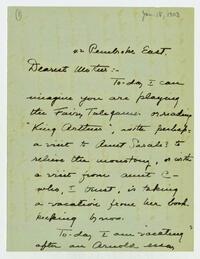 ①
Jan. 18, 1903
42 Pembroke East
Dearest Mother:-
To-day I can
imagine you are playing
the Fairy, Tale game or reading
"King Arthur", with perhaps
a visit to Aunt Sarah's to
relieve the monotony, or with
a visit from Aunt C-
who, I trust, is taking
a vacation from her book
keeping by now.
To-day I am vacating
after an Arnold essay